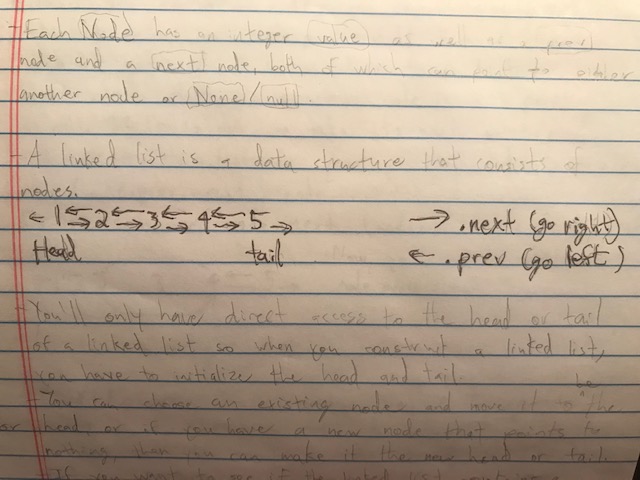 - Each Node has an integer value as well as a prev
node and a next node, both of which can point to either
another node or None/null.
- A linked list is a data structure that consists of
nodes.
← 1 ⇆ 2 ⇆ 3 ⇆ 4 ⇆ 5 → → .next (go right)
Head tail ← .prev (go left)
- You'll only have direct access to the head or tail
of a linked list so when you construct a linked list,
you have to initialize the head and tail.
- You can choose an existing node and move it to be the
or head, or if you have a new node that points to
nothing, then you can make it the new head or tail.
If you want to see if the linked list contains a